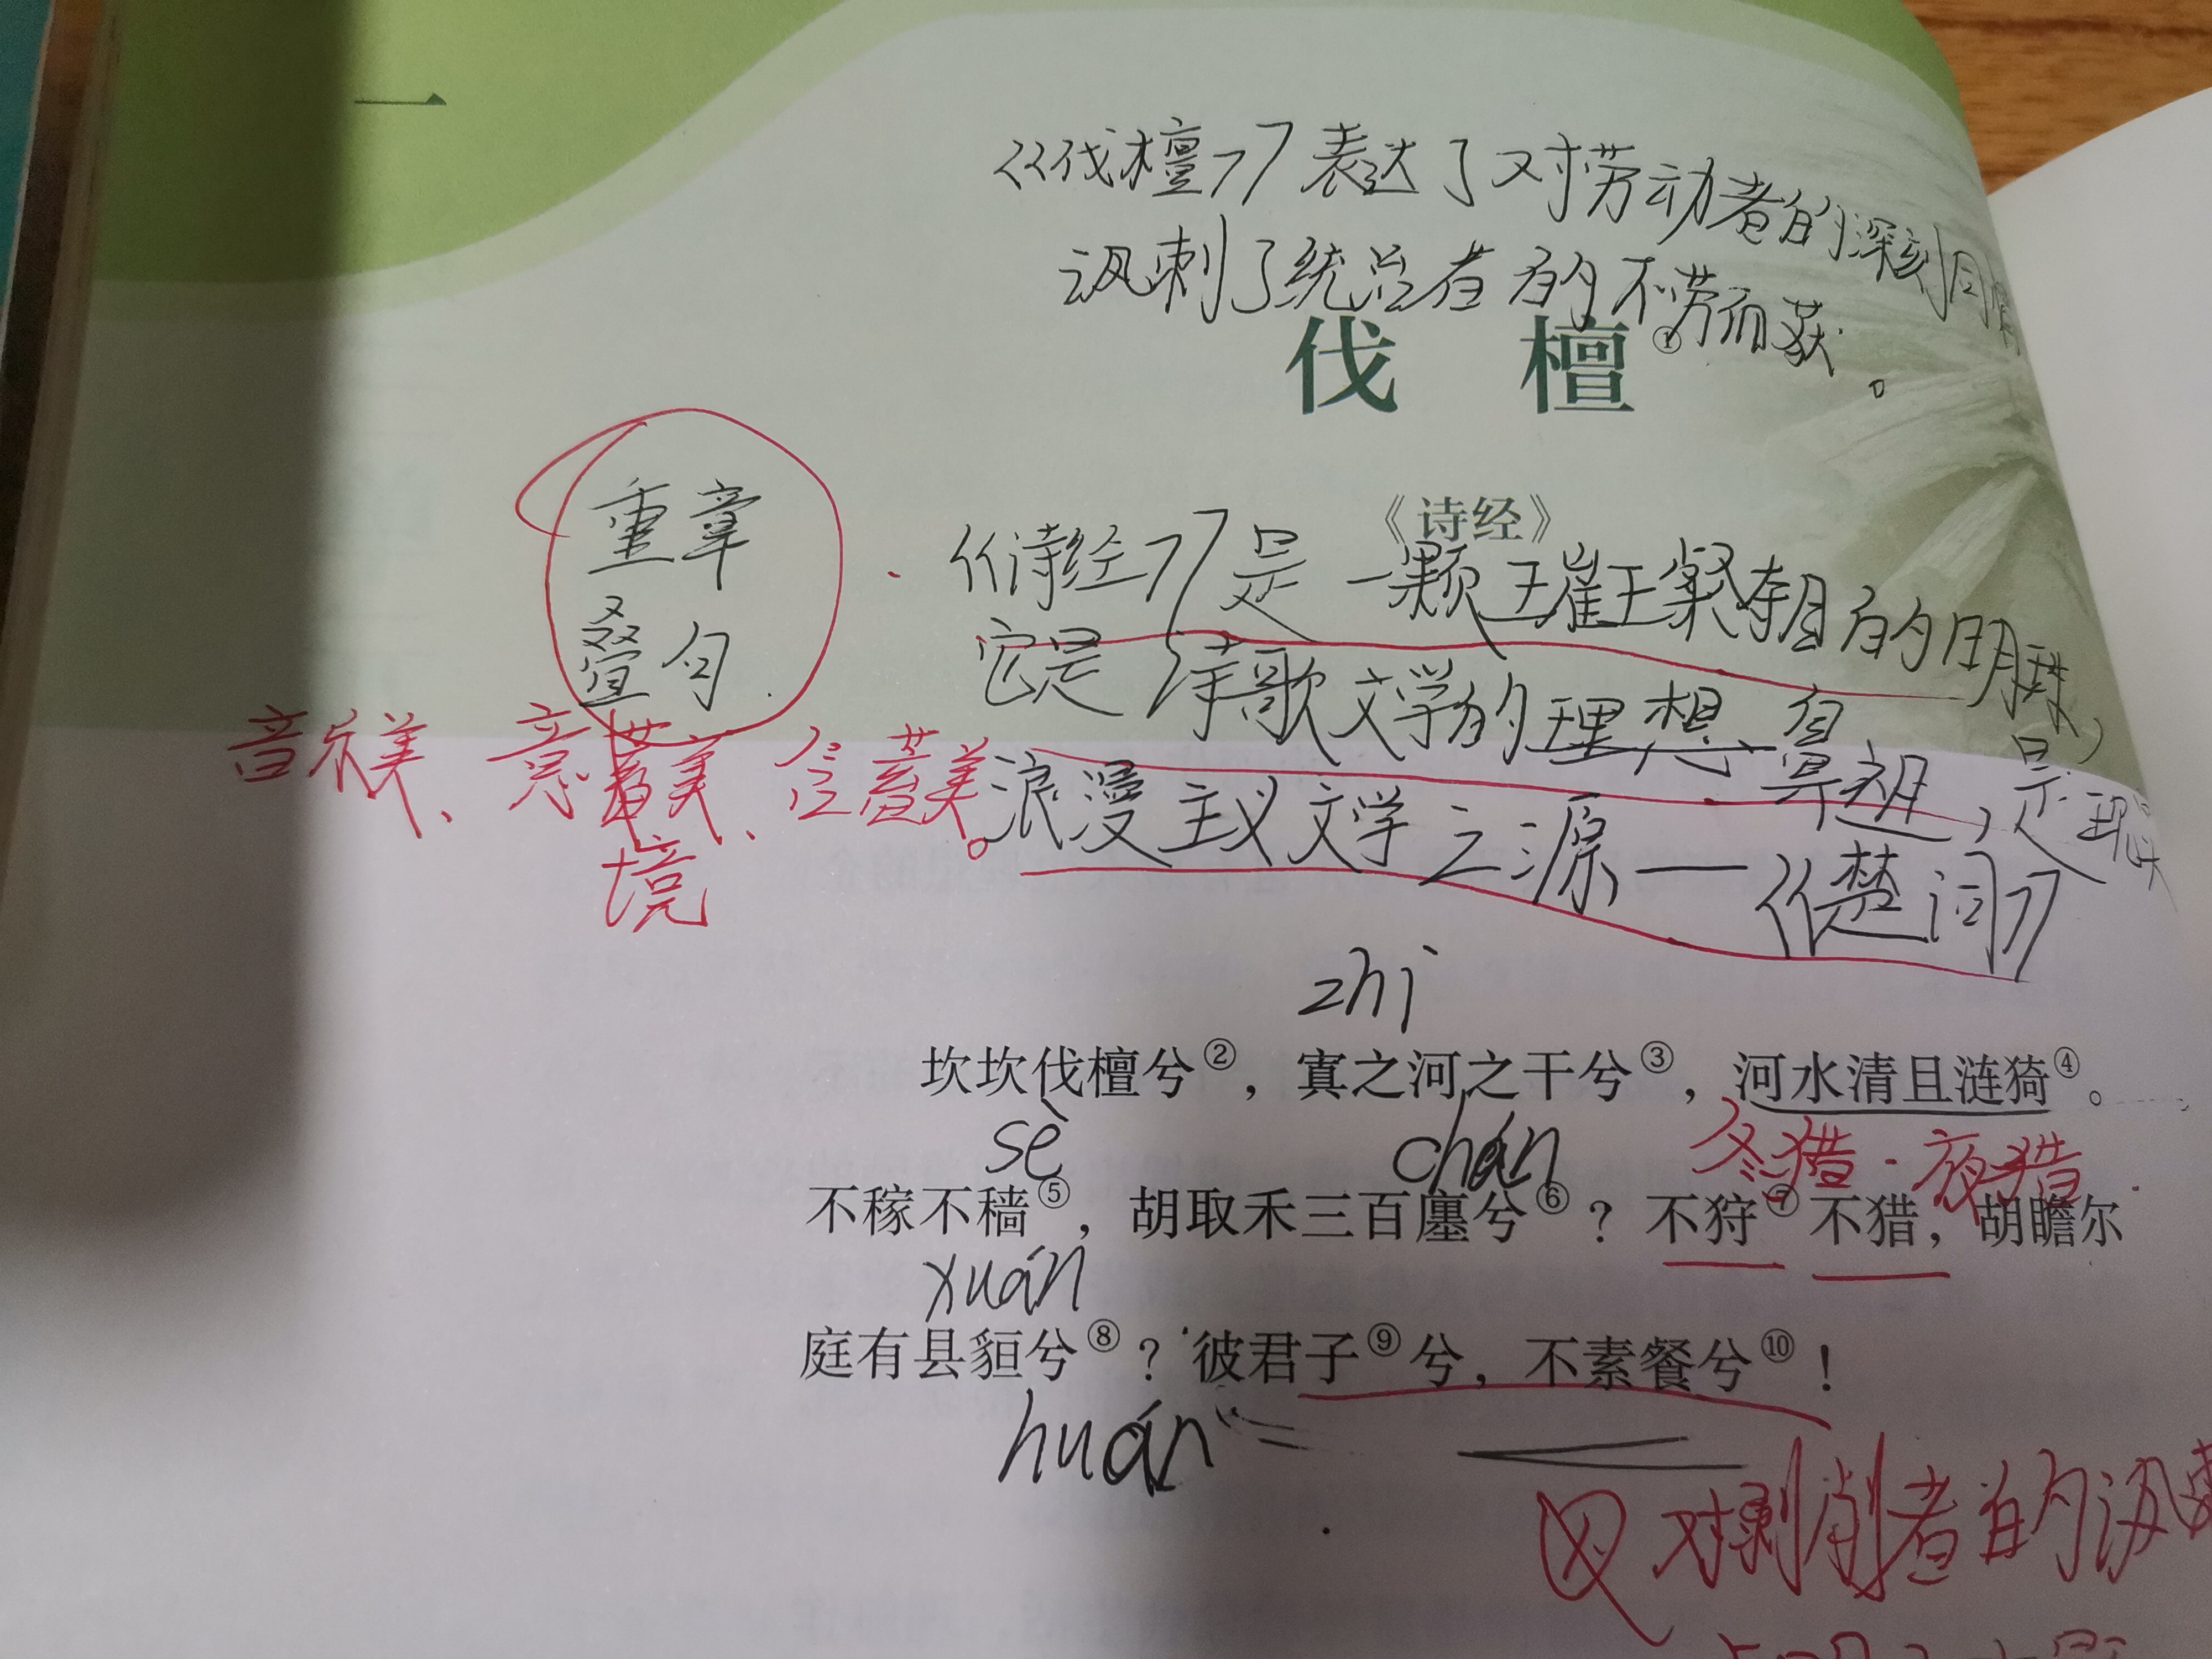 一
《伐檀》表达了对劳动者的深刻同情
讽刺了统治者的不劳而获。
伐 檀①
《诗经》
重章
叠句.
《诗经》是一颗璀璨夺目的明珠,
它是诗歌文学的理想鼻祖,是现
浪漫主义文学之源—《楚词》
音乐美、意蓄美、含蓄美。
境
zhì
坎坎伐檀兮②,寘之河之干兮③,河水清且涟猗④。
sè
chán
冬猎.夜猎.
不稼不穑⑤,胡取禾三百廛兮⑥?不狩⑦不猎,胡瞻尔
xuán
庭有县貆兮⑧?彼君子⑨兮,不素餐兮⑩!
huán
对剥削者的讽